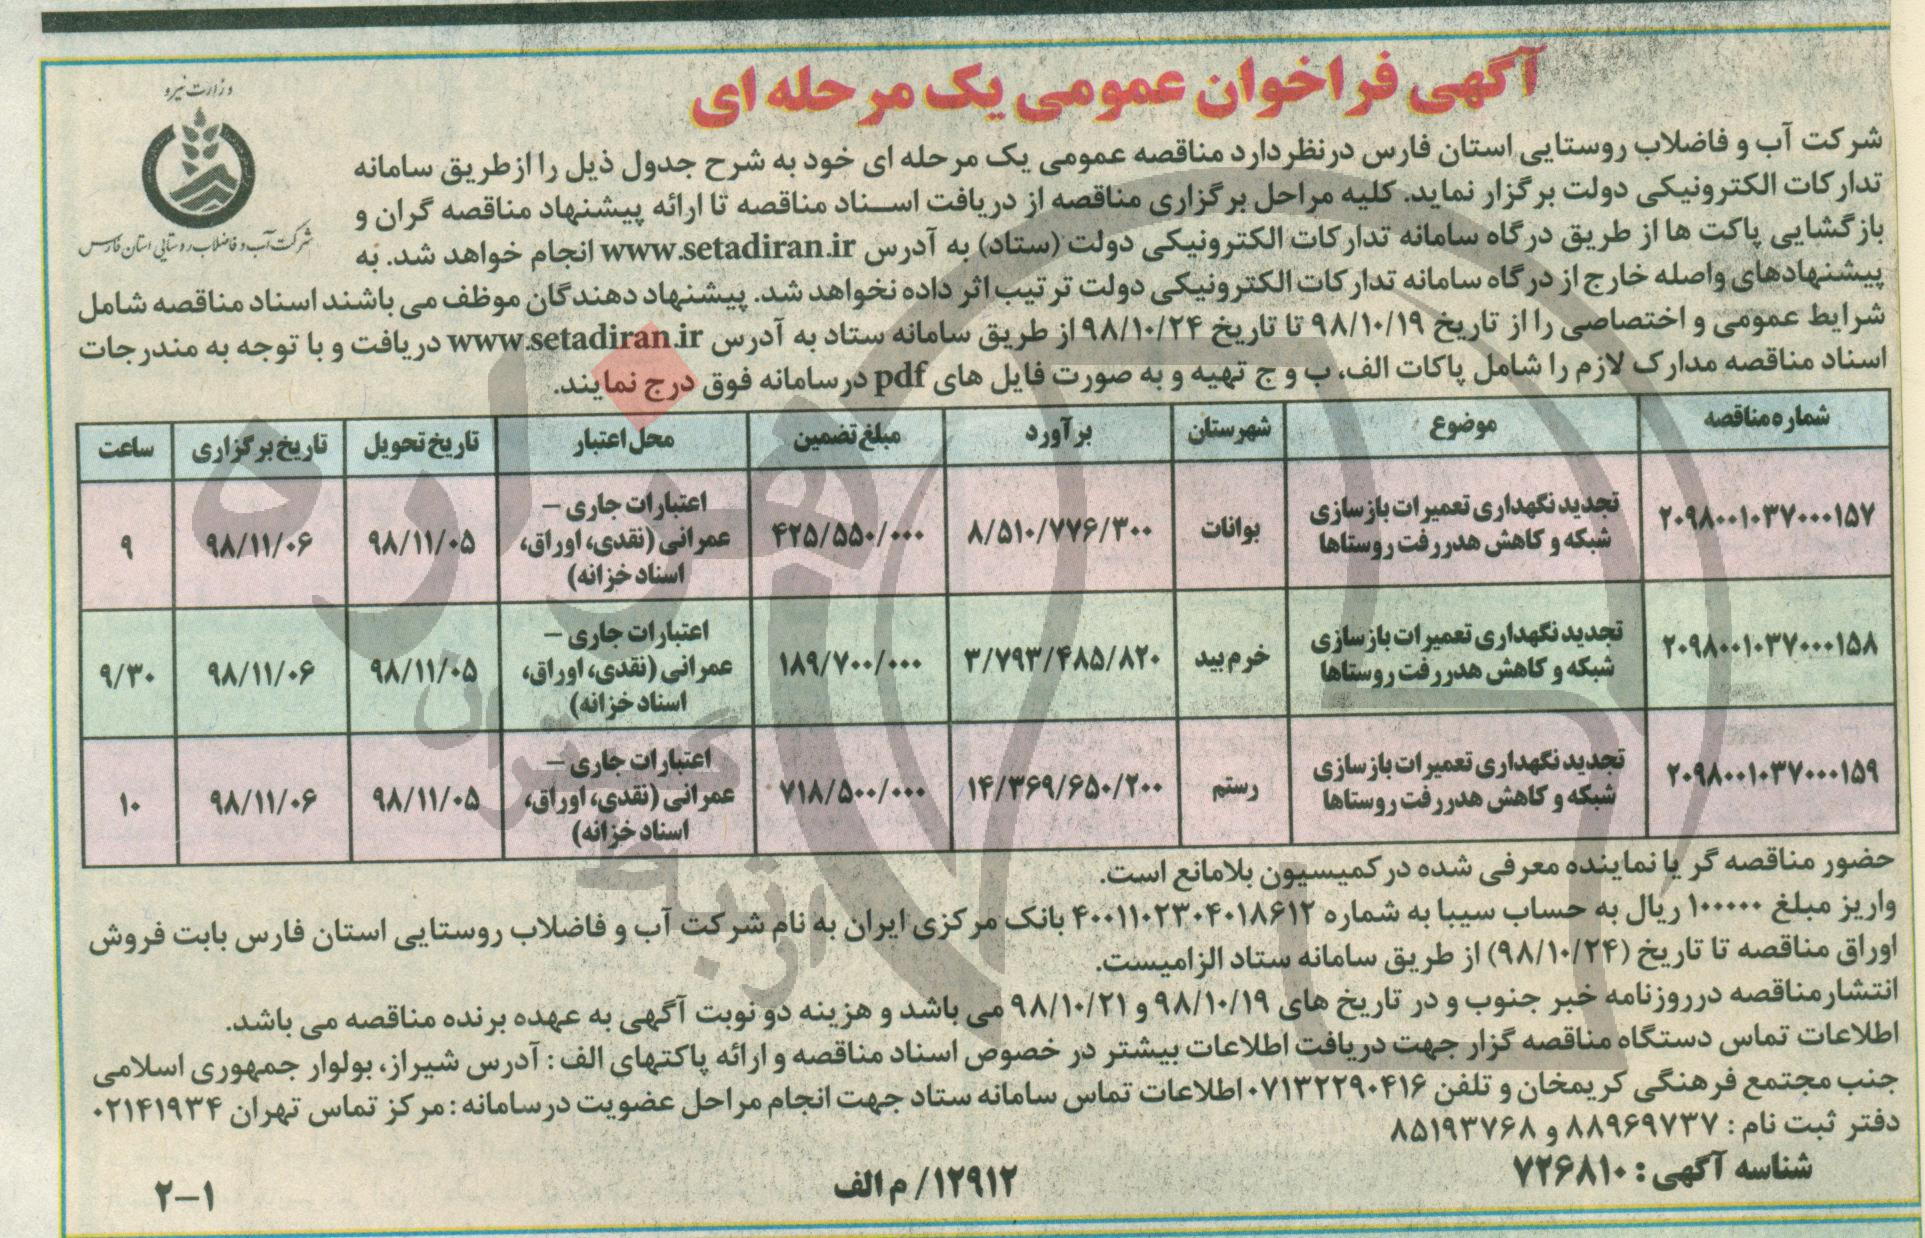 آگهی فراخوان عمومی یک مرحله ای
وزارت نیرو
شرکت آب و فاضلاب روستایی استان فارس
شرکت آب و فاضلاب روستایی استان فارس درنظر دارد مناقصه عمومی یک مرحله ای خود به شرح جدول ذیل را ازطریق سامانه
تدارکات الکترونیکی دولت برگزار نماید. کلیه مراحل برگزاری مناقصه از دریافت اسناد مناقصه تا ارائه پیشنهاد مناقصه گران و
بازگشایی پاکت ها از طریق درگاه سامانه تدارکات الکترونیکی دولت (ستاد) به آدرس www.setadiran.ir انجام خواهد شد. به
پیشنهادهای واصله خارج از درگاه سامانه تدارکات الکترونیکی دولت ترتیب اثر داده نخواهد شد. پیشنهاد دهندگان موظف می باشند اسناد مناقصه شامل
شرایط عمومی و اختصاصی را از تاریخ ۹۸/۱۰/۱۹ تا تاریخ ۹۸/۱۰/۲۴ از طریق سامانه ستاد به آدرس www.setadiran.ir دریافت و با توجه به مندرجات
اسناد مناقصه مدارک لازم را شامل پاکات الف، ب و ج تهیه و به صورت فایل های pdf درسامانه فوق درج نمایند.
شماره مناقصه موضوع شهرستان برآورد مبلغ تضمین محل اعتبار تاریخ تحویل تاریخ برگزاری ساعت
۲۰۹۸۰۰۱۰۳۷۰۰۰۱۵۷ تجدید نگهداری تعمیرات بازسازی شبکه و کاهش هدررفت روستاها بوانات ۸/۵۱۰/۷۷۶/۳۰۰ ۴۲۵/۵۵۰/۰۰۰ اعتبارات جاری – عمرانی (نقدی، اوراق، اسناد خزانه) ۹۸/۱۱/۰۵ ۹۸/۱۱/۰۶ ۹
۲۰۹۸۰۰۱۰۳۷۰۰۰۱۵۸ تجدید نگهداری تعمیرات بازسازی شبکه و کاهش هدررفت روستاها خرم بید ۳/۷۹۳/۴۸۵/۸۲۰ ۱۸۹/۷۰۰/۰۰۰ اعتبارات جاری – عمرانی (نقدی، اوراق، اسناد خزانه) ۹۸/۱۱/۰۵ ۹۸/۱۱/۰۶ ۹/۳۰
۲۰۹۸۰۰۱۰۳۷۰۰۰۱۵۹ تجدید نگهداری تعمیرات بازسازی شبکه و کاهش هدررفت روستاها رستم ۱۴/۳۶۹/۶۵۰/۲۰۰ ۷۱۸/۵۰۰/۰۰۰ اعتبارات جاری – عمرانی (نقدی، اوراق، اسناد خزانه) ۹۸/۱۱/۰۵ ۹۸/۱۱/۰۶ ۱۰
حضور مناقصه گر یا نماینده معرفی شده در کمیسیون بلامانع است.
واریز مبلغ ۱۰۰۰۰۰ ریال به حساب سیبا به شماره ۴۰۰۱۱۰۲۳۰۴۰۱۸۶۱۲ بانک مرکزی ایران به نام شرکت آب و فاضلاب روستایی استان فارس بابت فروش
اوراق مناقصه تا تاریخ (۹۸/۱۰/۲۴) از طریق سامانه ستاد الزامیست.
انتشار مناقصه درروزنامه خبر جنوب و در تاریخ های ۹۸/۱۰/۱۹ و ۹۸/۱۰/۲۱ می باشد و هزینه دو نوبت آگهی به عهده برنده مناقصه می باشد.
اطلاعات تماس دستگاه مناقصه گزار جهت دریافت اطلاعات بیشتر در خصوص اسناد مناقصه و ارائه پاکتهای الف : آدرس شیراز، بولوار جمهوری اسلامی
جنب مجتمع فرهنگی کریمخان و تلفن ۰۷۱۳۲۲۹۰۴۱۶ اطلاعات تماس سامانه ستاد جهت انجام مراحل عضویت درسامانه : مرکز تماس تهران ۰۲۱۴۱۹۳۴
دفتر ثبت نام : ۸۸۹۶۹۷۳۷ و ۸۵۱۹۳۷۶۸
شناسه آگهی : ۷۲۶۸۱۰
۱۲۹۱۲/ م الف
۲-۱
هزاره
ارتباط گستران